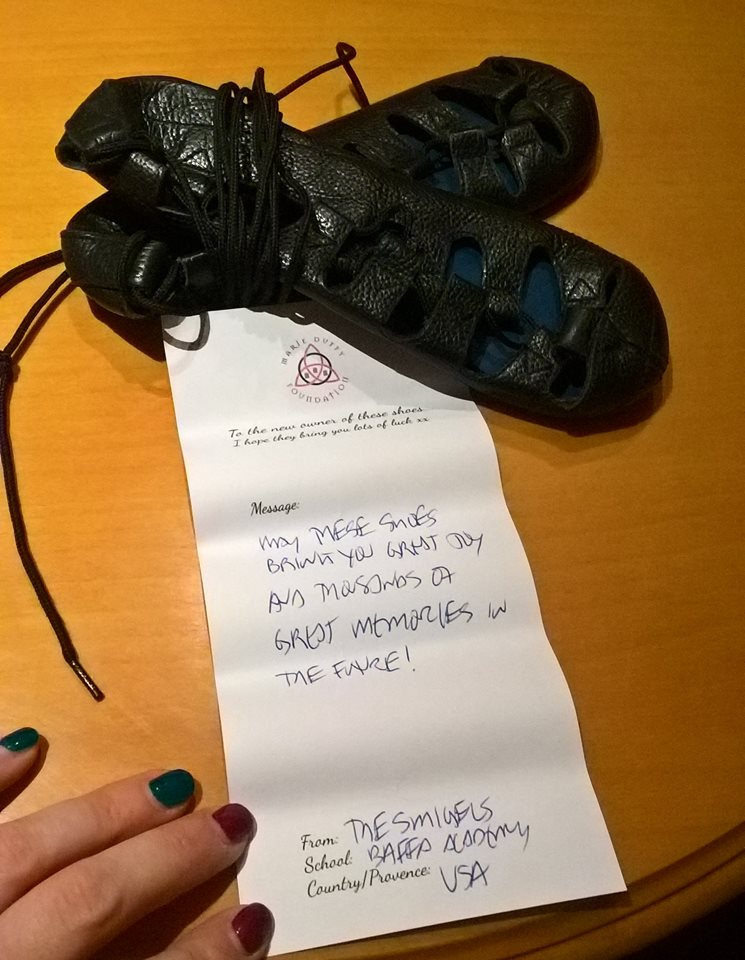 MARIE DUFFY
FOUNDATION
To the new owner of these shoes
I hope they bring you lots of luck xx
Message:
MAY THESE SHOES
BRING YOU GREAT JOY
AND THOUSANDS OF
GREAT MEMORIES IN
THE FUTURE!
From: THE SMIGELS
School: BAFFA ACADEMY
Country/Provence: USA